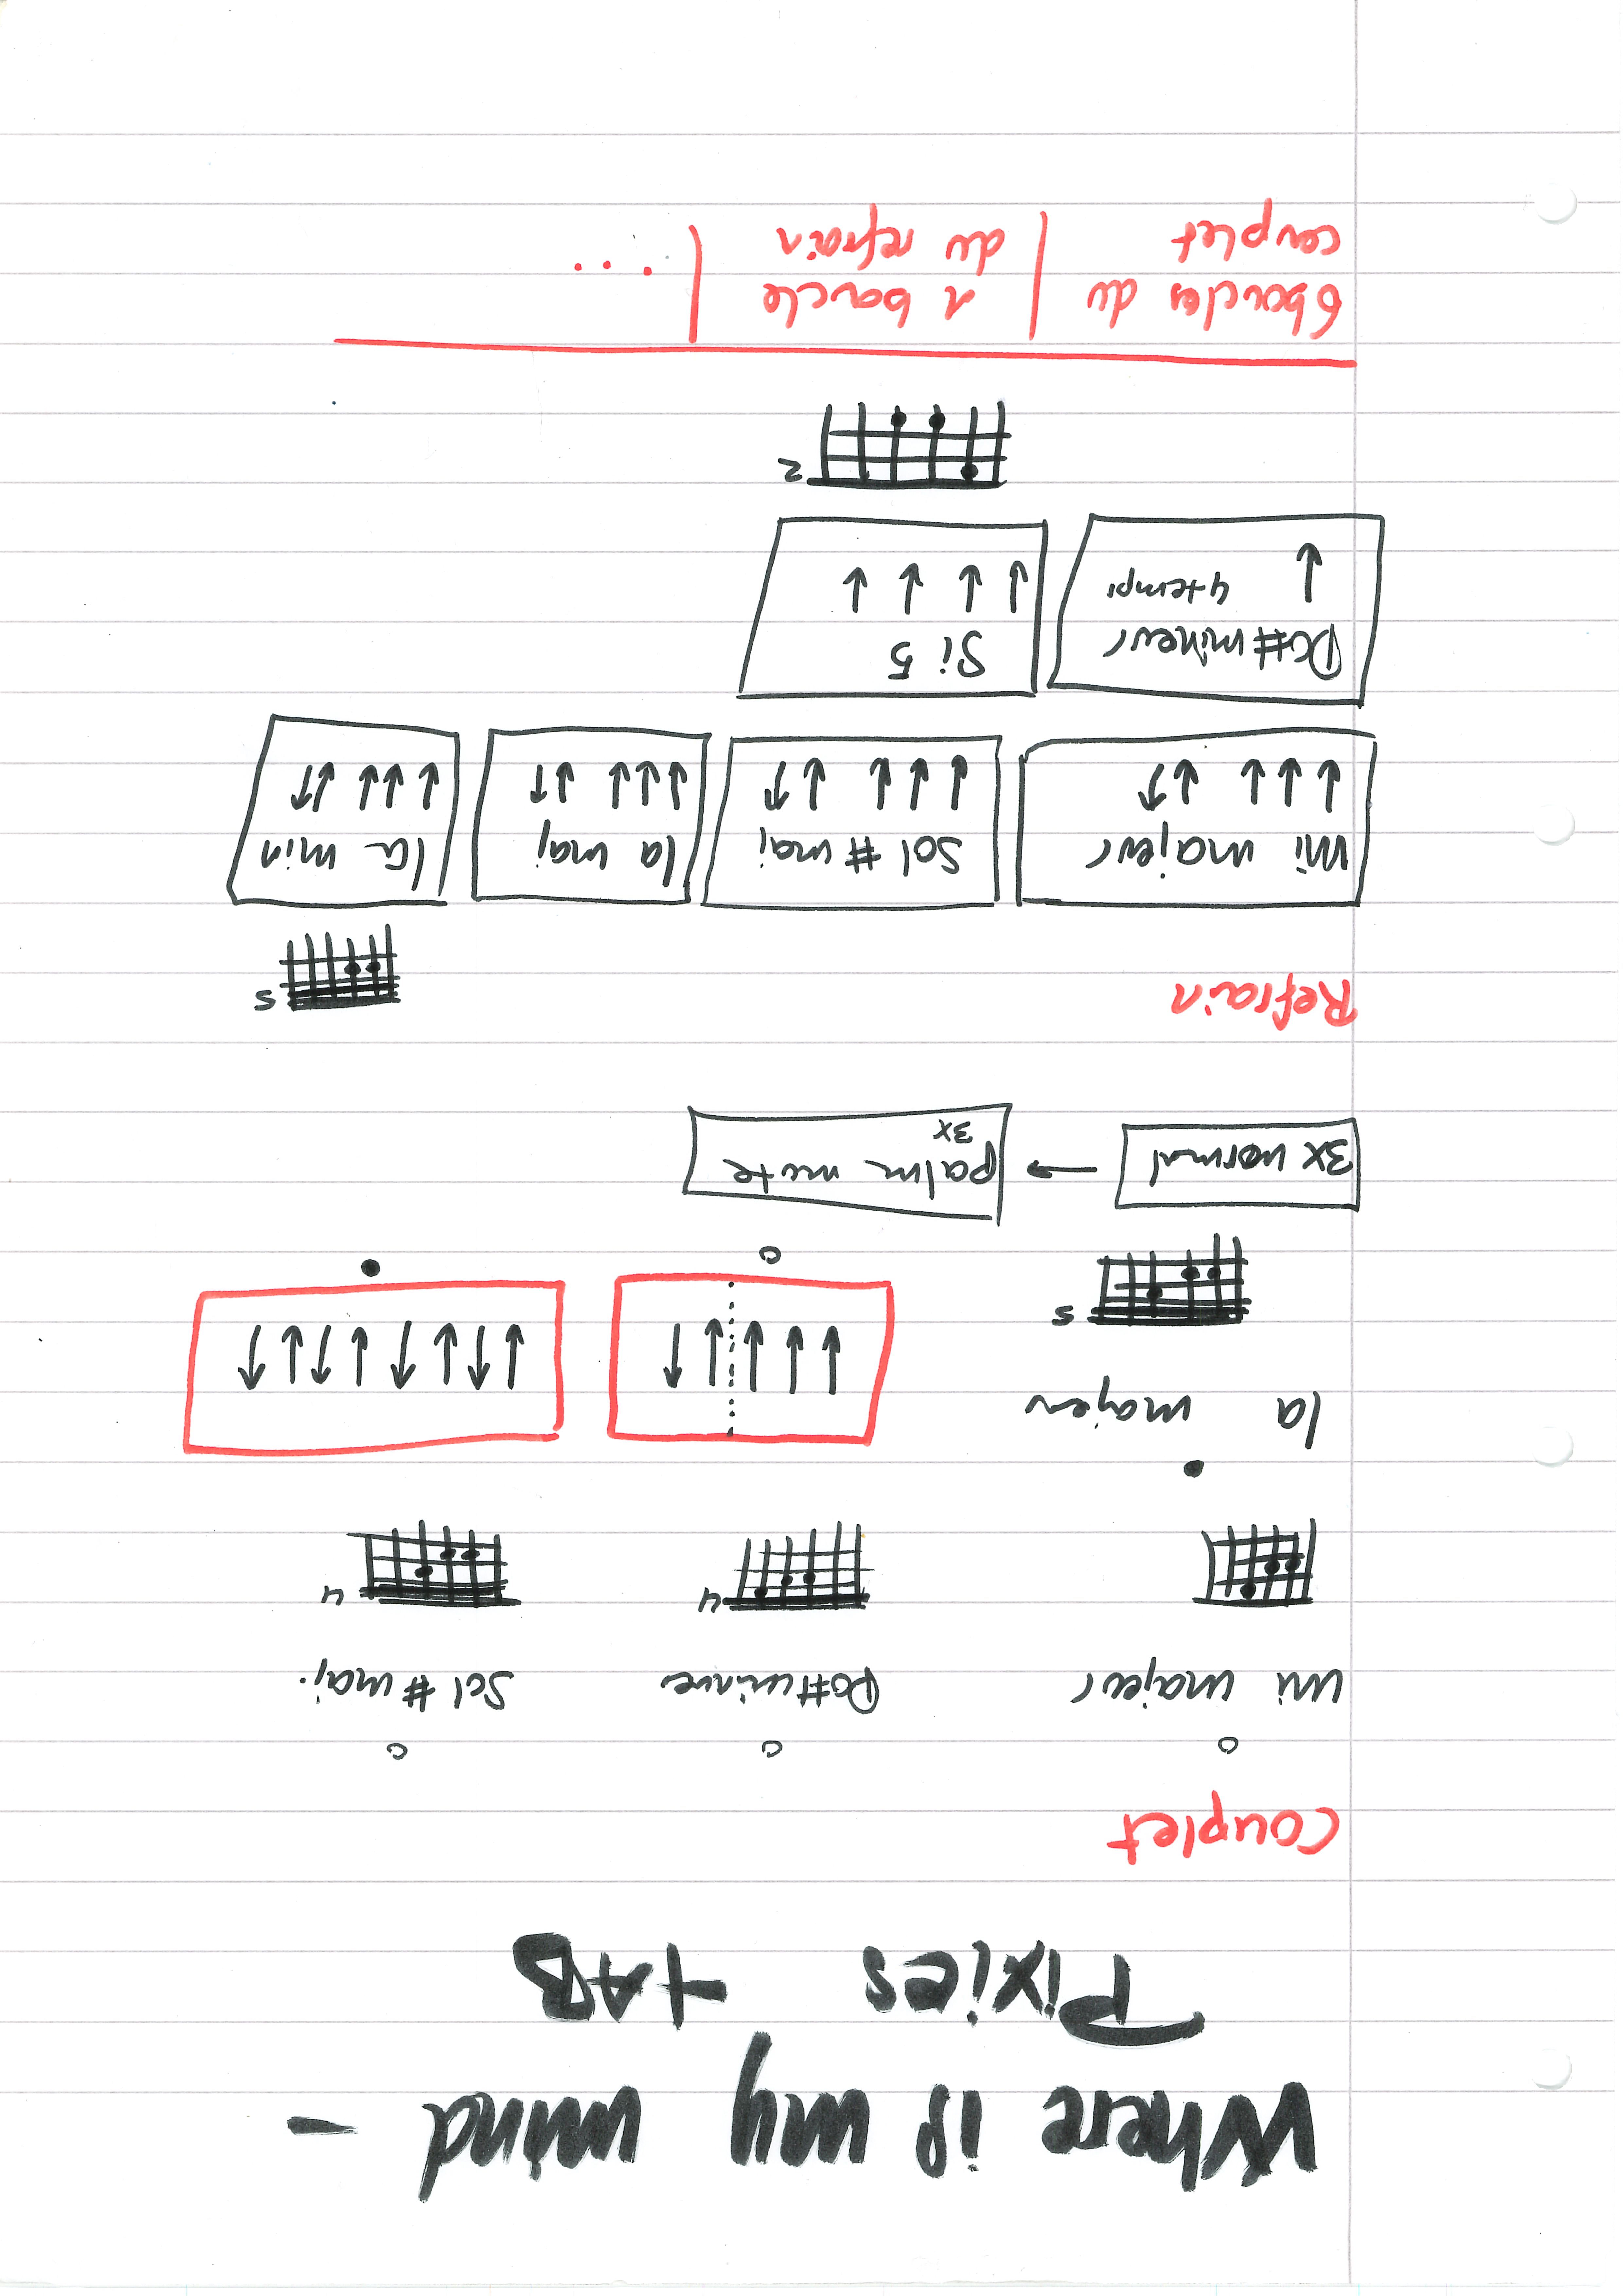 Where is my mind -
Pixies TAB
Couplet
mi majeur Do#mineur Sol # maj.
4 4
la majeur
5
3x normal → palm mute
3x
Refrain
5
mi majeur Sol # maj la maj la min
Do#mineur Si 5
4 temps
2
6 boucles du 1 boucle
couplet du refrain ...